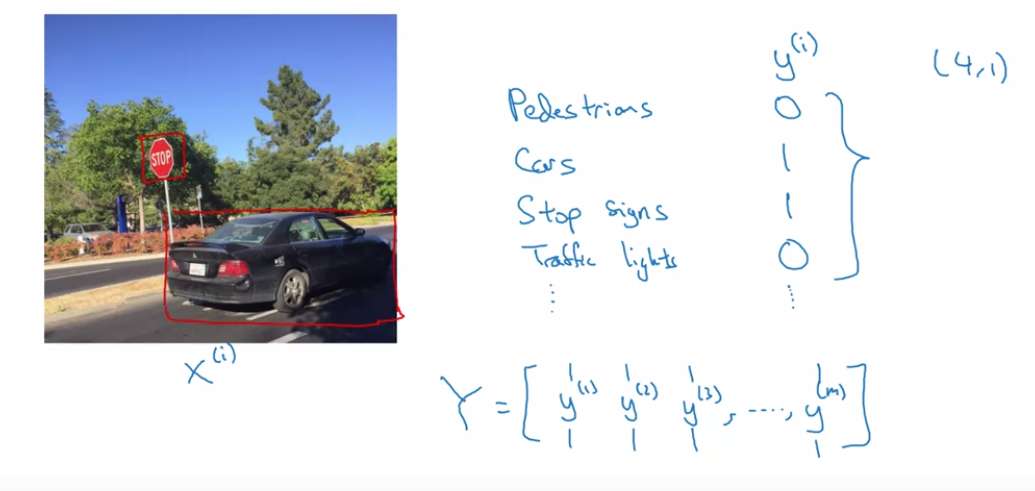 STOP
x^(i)
y^(i) (4,1)
Pedestrians 0
Cars 1
Stop signs 1
Traffic lights 0
⋮ ⋮
Y = [ y^(1) y^(2) y^(3), ...., y^(m) ]